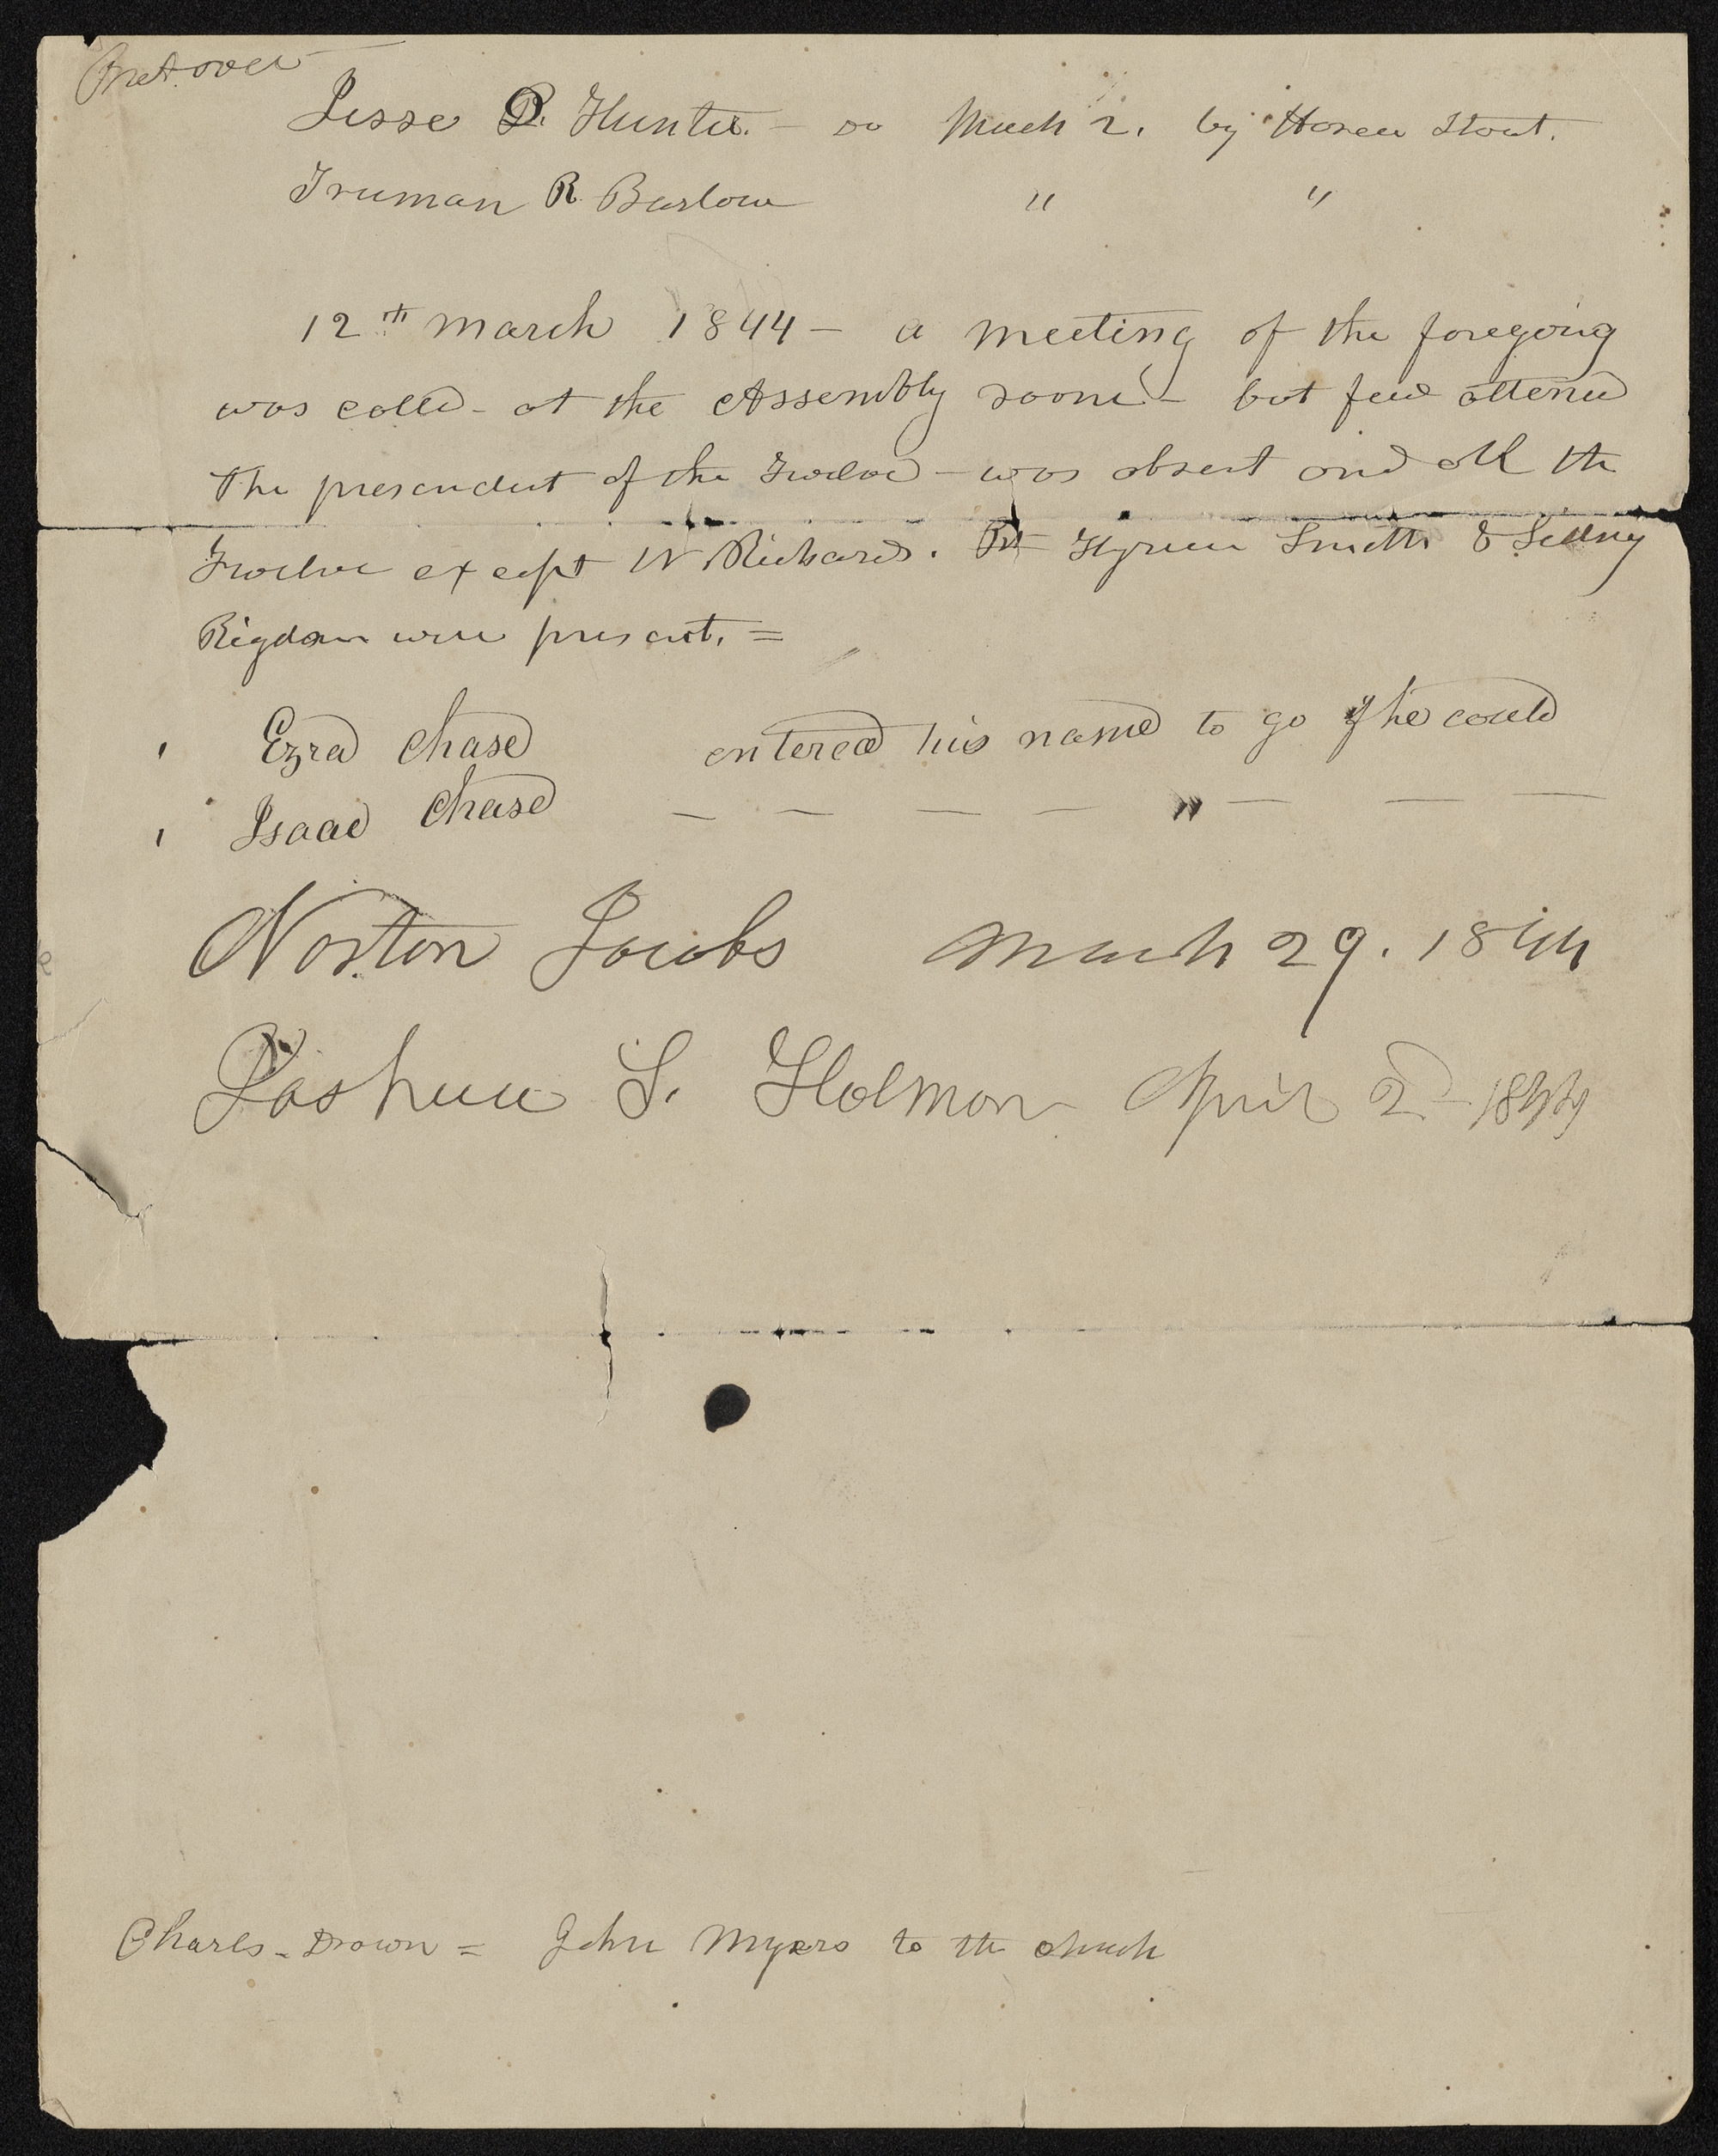 over
Jesse D. Hunter. – do March 2. by Hosea Stout.
Truman R Barlow " "
12th march 1844 – a meeting of the foregoing
was calld – at the Assembly room – but few attend
The presendent of the Twelve – was absent and all the
Twelve except W Richards. Pt Hyrum Smith & Sidney
Rigdon were present. =
Ezra Chase entered his name to go if he could
Isaac Chase — — — — " — — —
Norton Jacobs March 29. 1844
Joshua S. Holman April 2d 1844
Charls – Drown = John Myers to the church